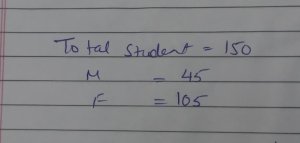 Total student = 150
M = 45
F = 105